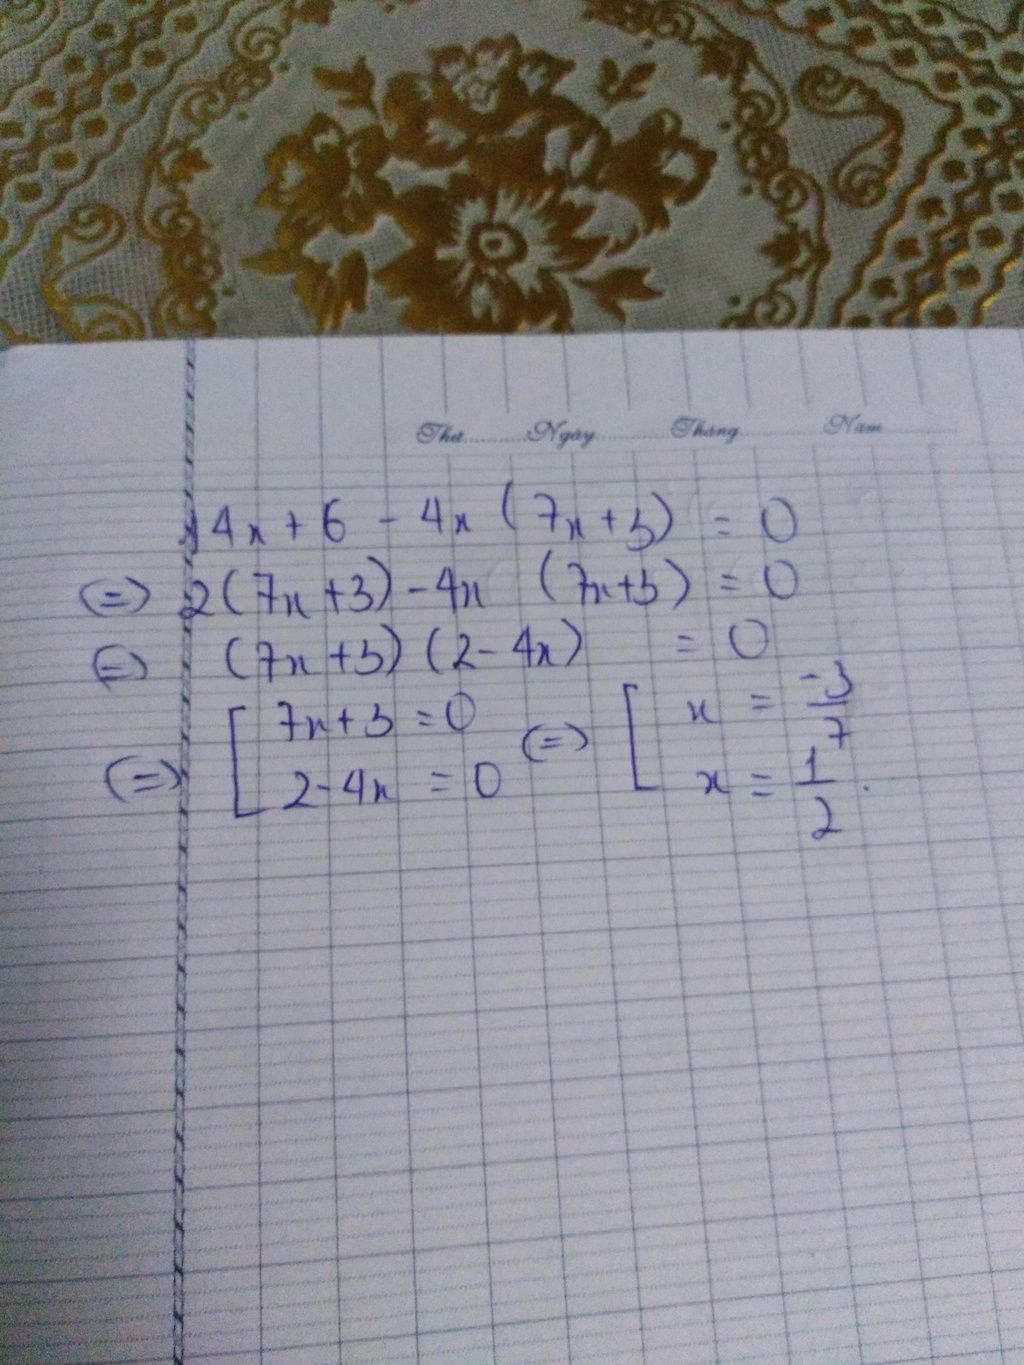 Thứ........Ngày............Tháng............Năm............
14x + 6 - 4x (7x + 3) = 0
(=) 2(7x + 3) - 4x (7x + 3) = 0
(=) (7x + 3) (2 - 4x) = 0
(=) [ 7x + 3 = 0 (=) [ x = -3/7
2 - 4x = 0 x = 1/2.